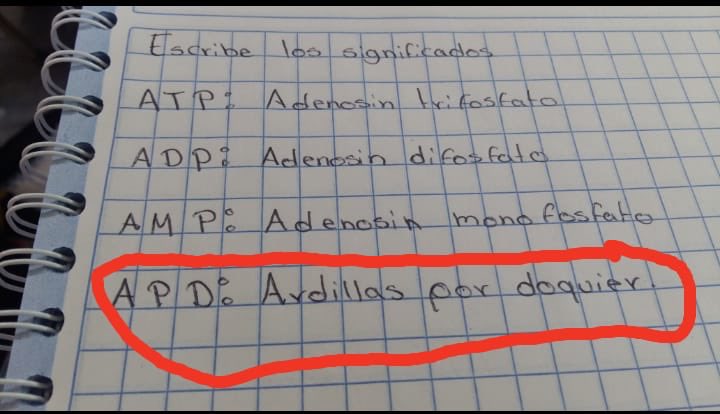 Escribe los significados
ATP: Adenosin trifosfato
ADP: Adenosin difosfato
AMP: Adenosin monofosfato
APD: Ardillas por doquier.